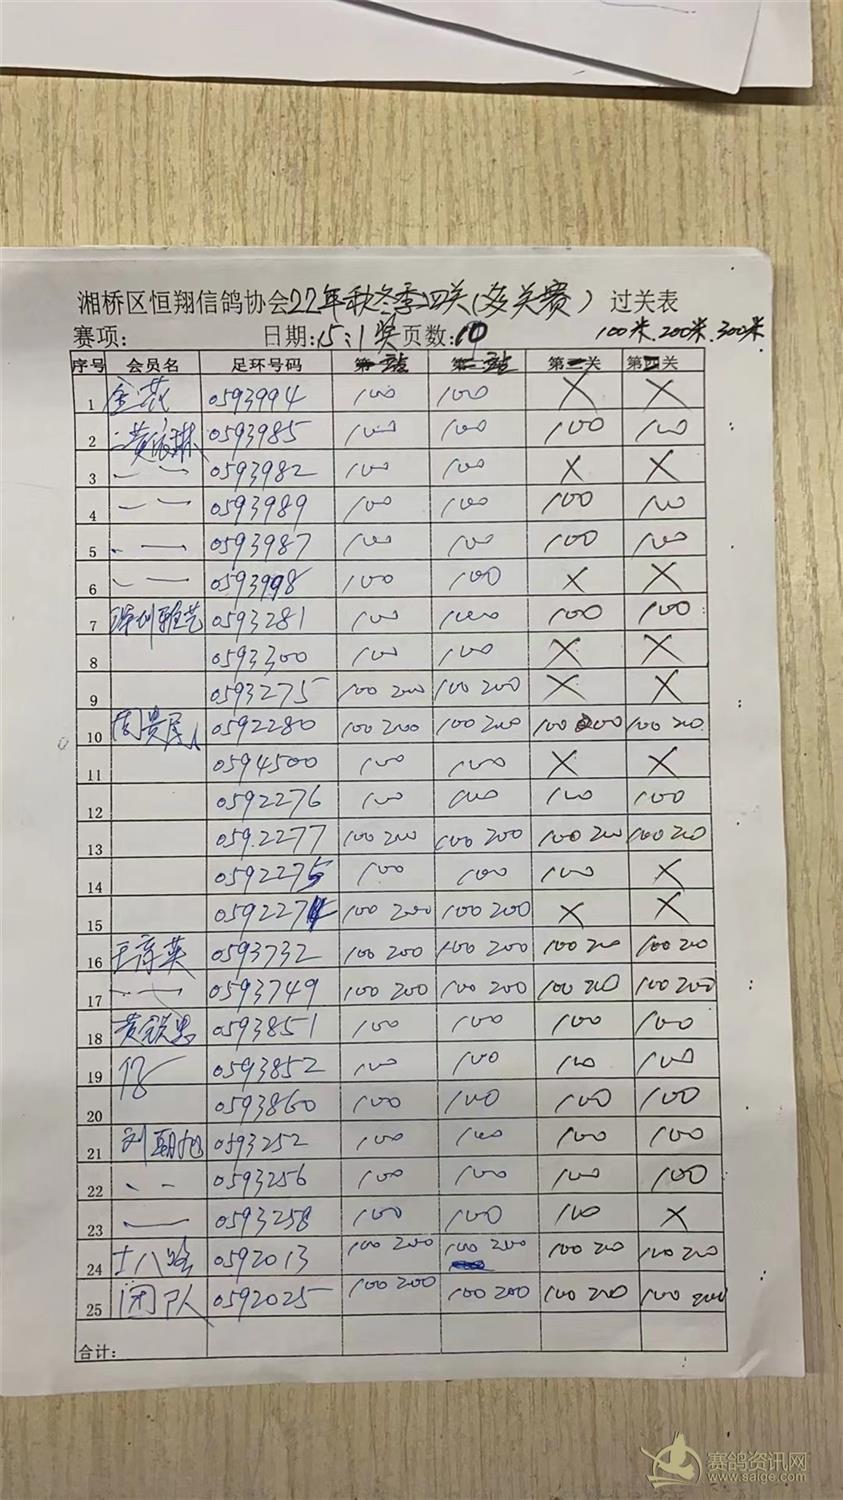 湘桥区恒翔信鸽协会22年秋冬季四关(多关赛) 过关表
赛项: 日期:15:1奖页数:10 100米.200米.300米
序号 会员名 足环号码 第一站 第二站 第三关 第四关
1 金花 0593994 100 100 X X
2 黄 琳 0593985 100 100 100 100
3 〃 0593982 100 100 X X
4 〃 0593989 100 100 100 100
5 〃 0593987 100 100 100 100
6 〃 0593998 100 100 X X
7 深圳雅艺 0593281 100 100 100 100
8 0593300 100 100 X X
9 0593275 100 200 100 200 X X
10 周贵 0592280 100 200 100 200 100 200 100 200
11 0594500 100 100 X X
12 0592276 100 100 100 100
13 0592277 100 200 100 200 100 200 100 200
14 0592275 100 100 100 X
15 0592274 100 200 100 200 X X
16 王 英 0593732 100 200 100 200 100 200 100 200
17 〃 0593749 100 200 100 200 100 200 100 200
18 黄 忠 0593851 100 100 100 100
19 0593852 100 100 100 100
20 0593860 100 100 100 100
21 刘朝旭 0593252 100 100 100 100
22 〃 0593256 100 100 100 100
23 〃 0593258 100 100 100 X
24 十八 0592013 100 200 100 200 100 200 100 200
25 团队 0592025 100 200 100 200 100 200 100 200
合计:
赛鸽资讯网
www.saige.com